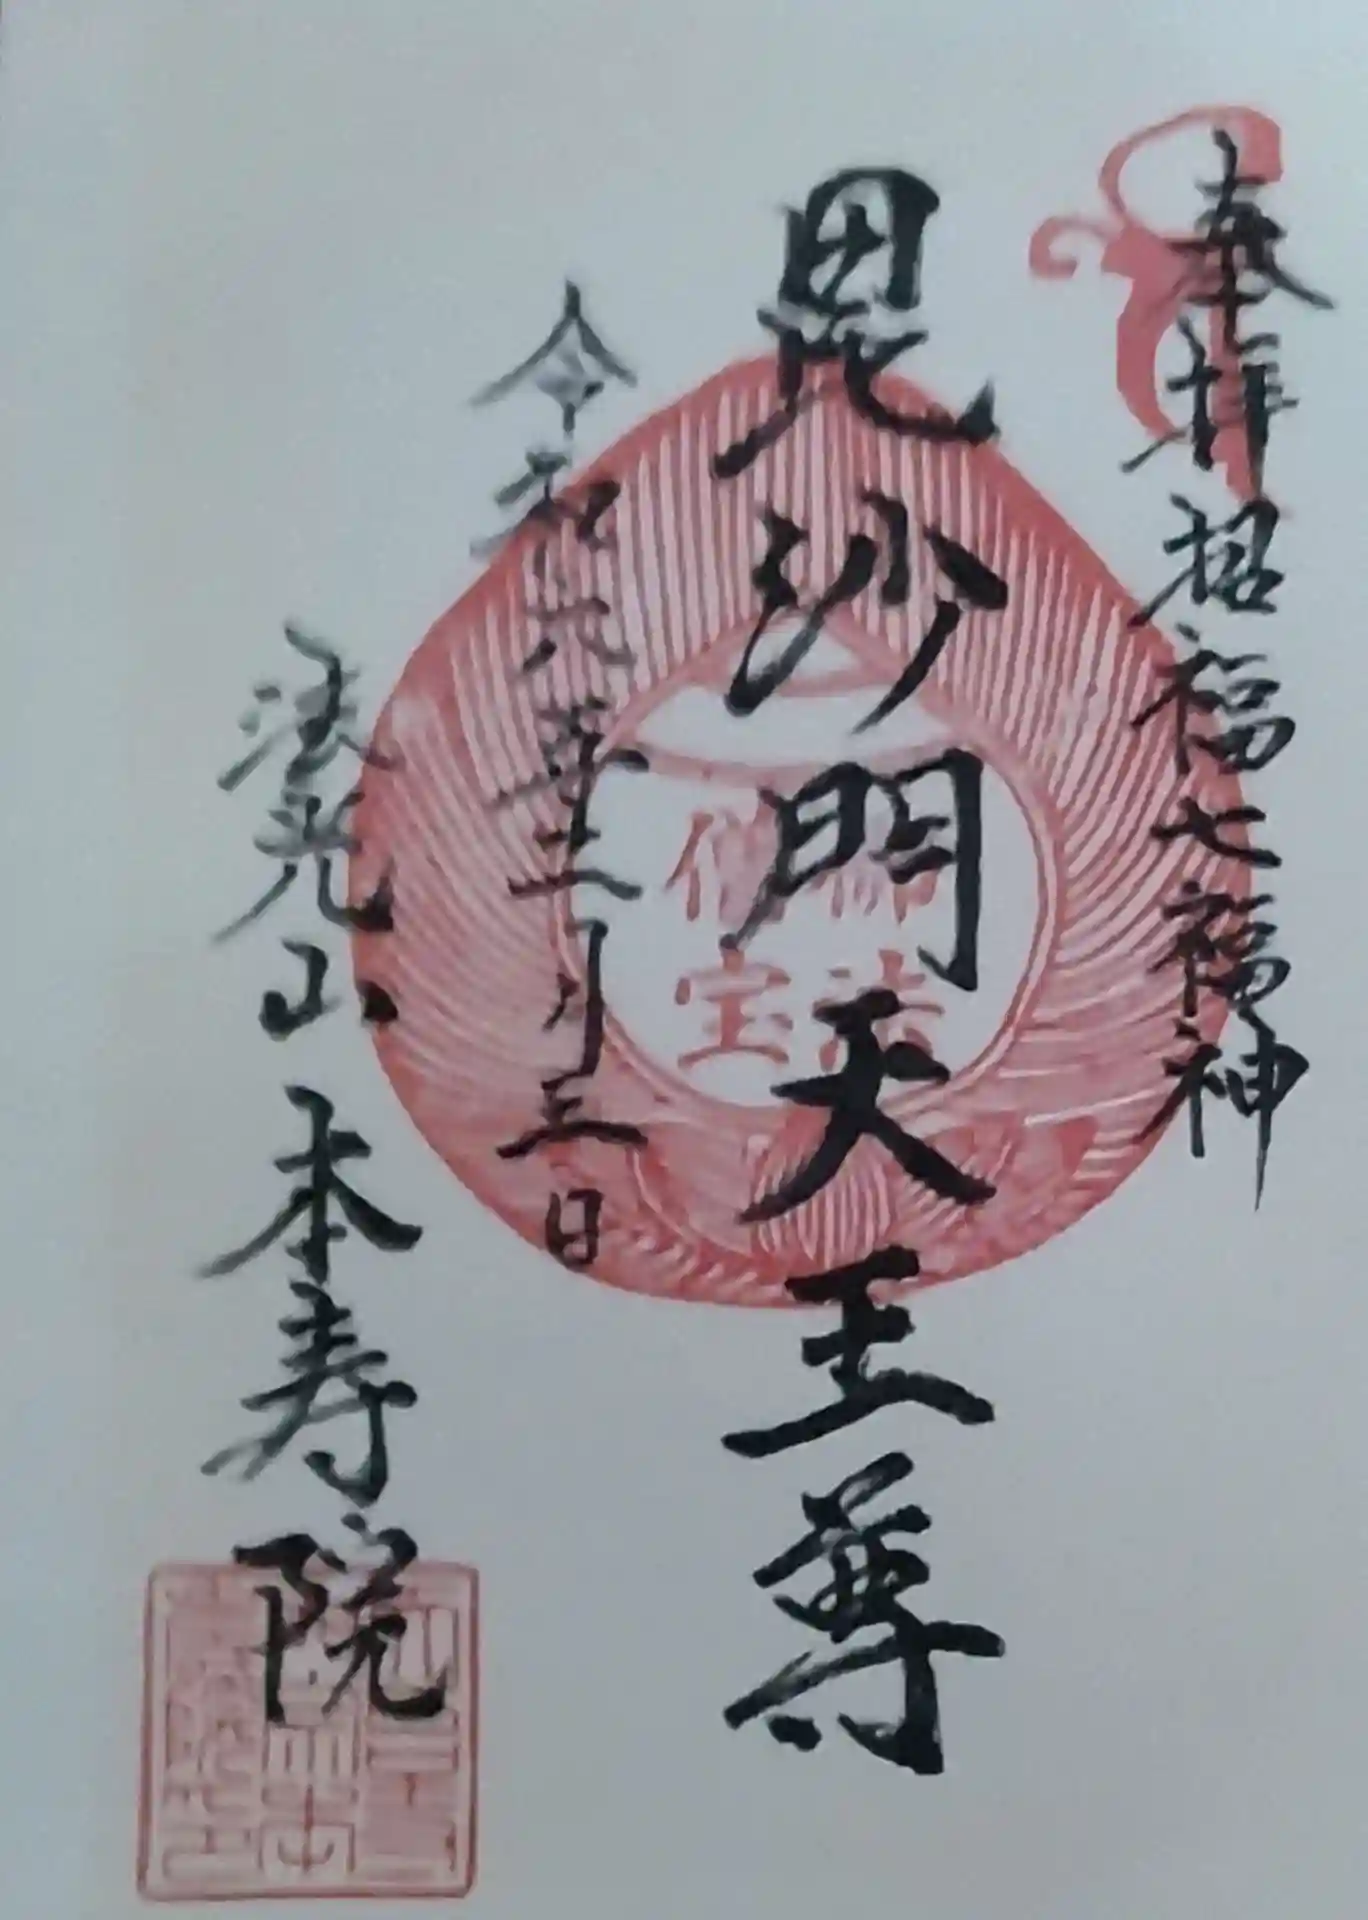 奉拝 招福七福神
毘沙門天王尊
令和六年十二月三日
法光山 本寿院